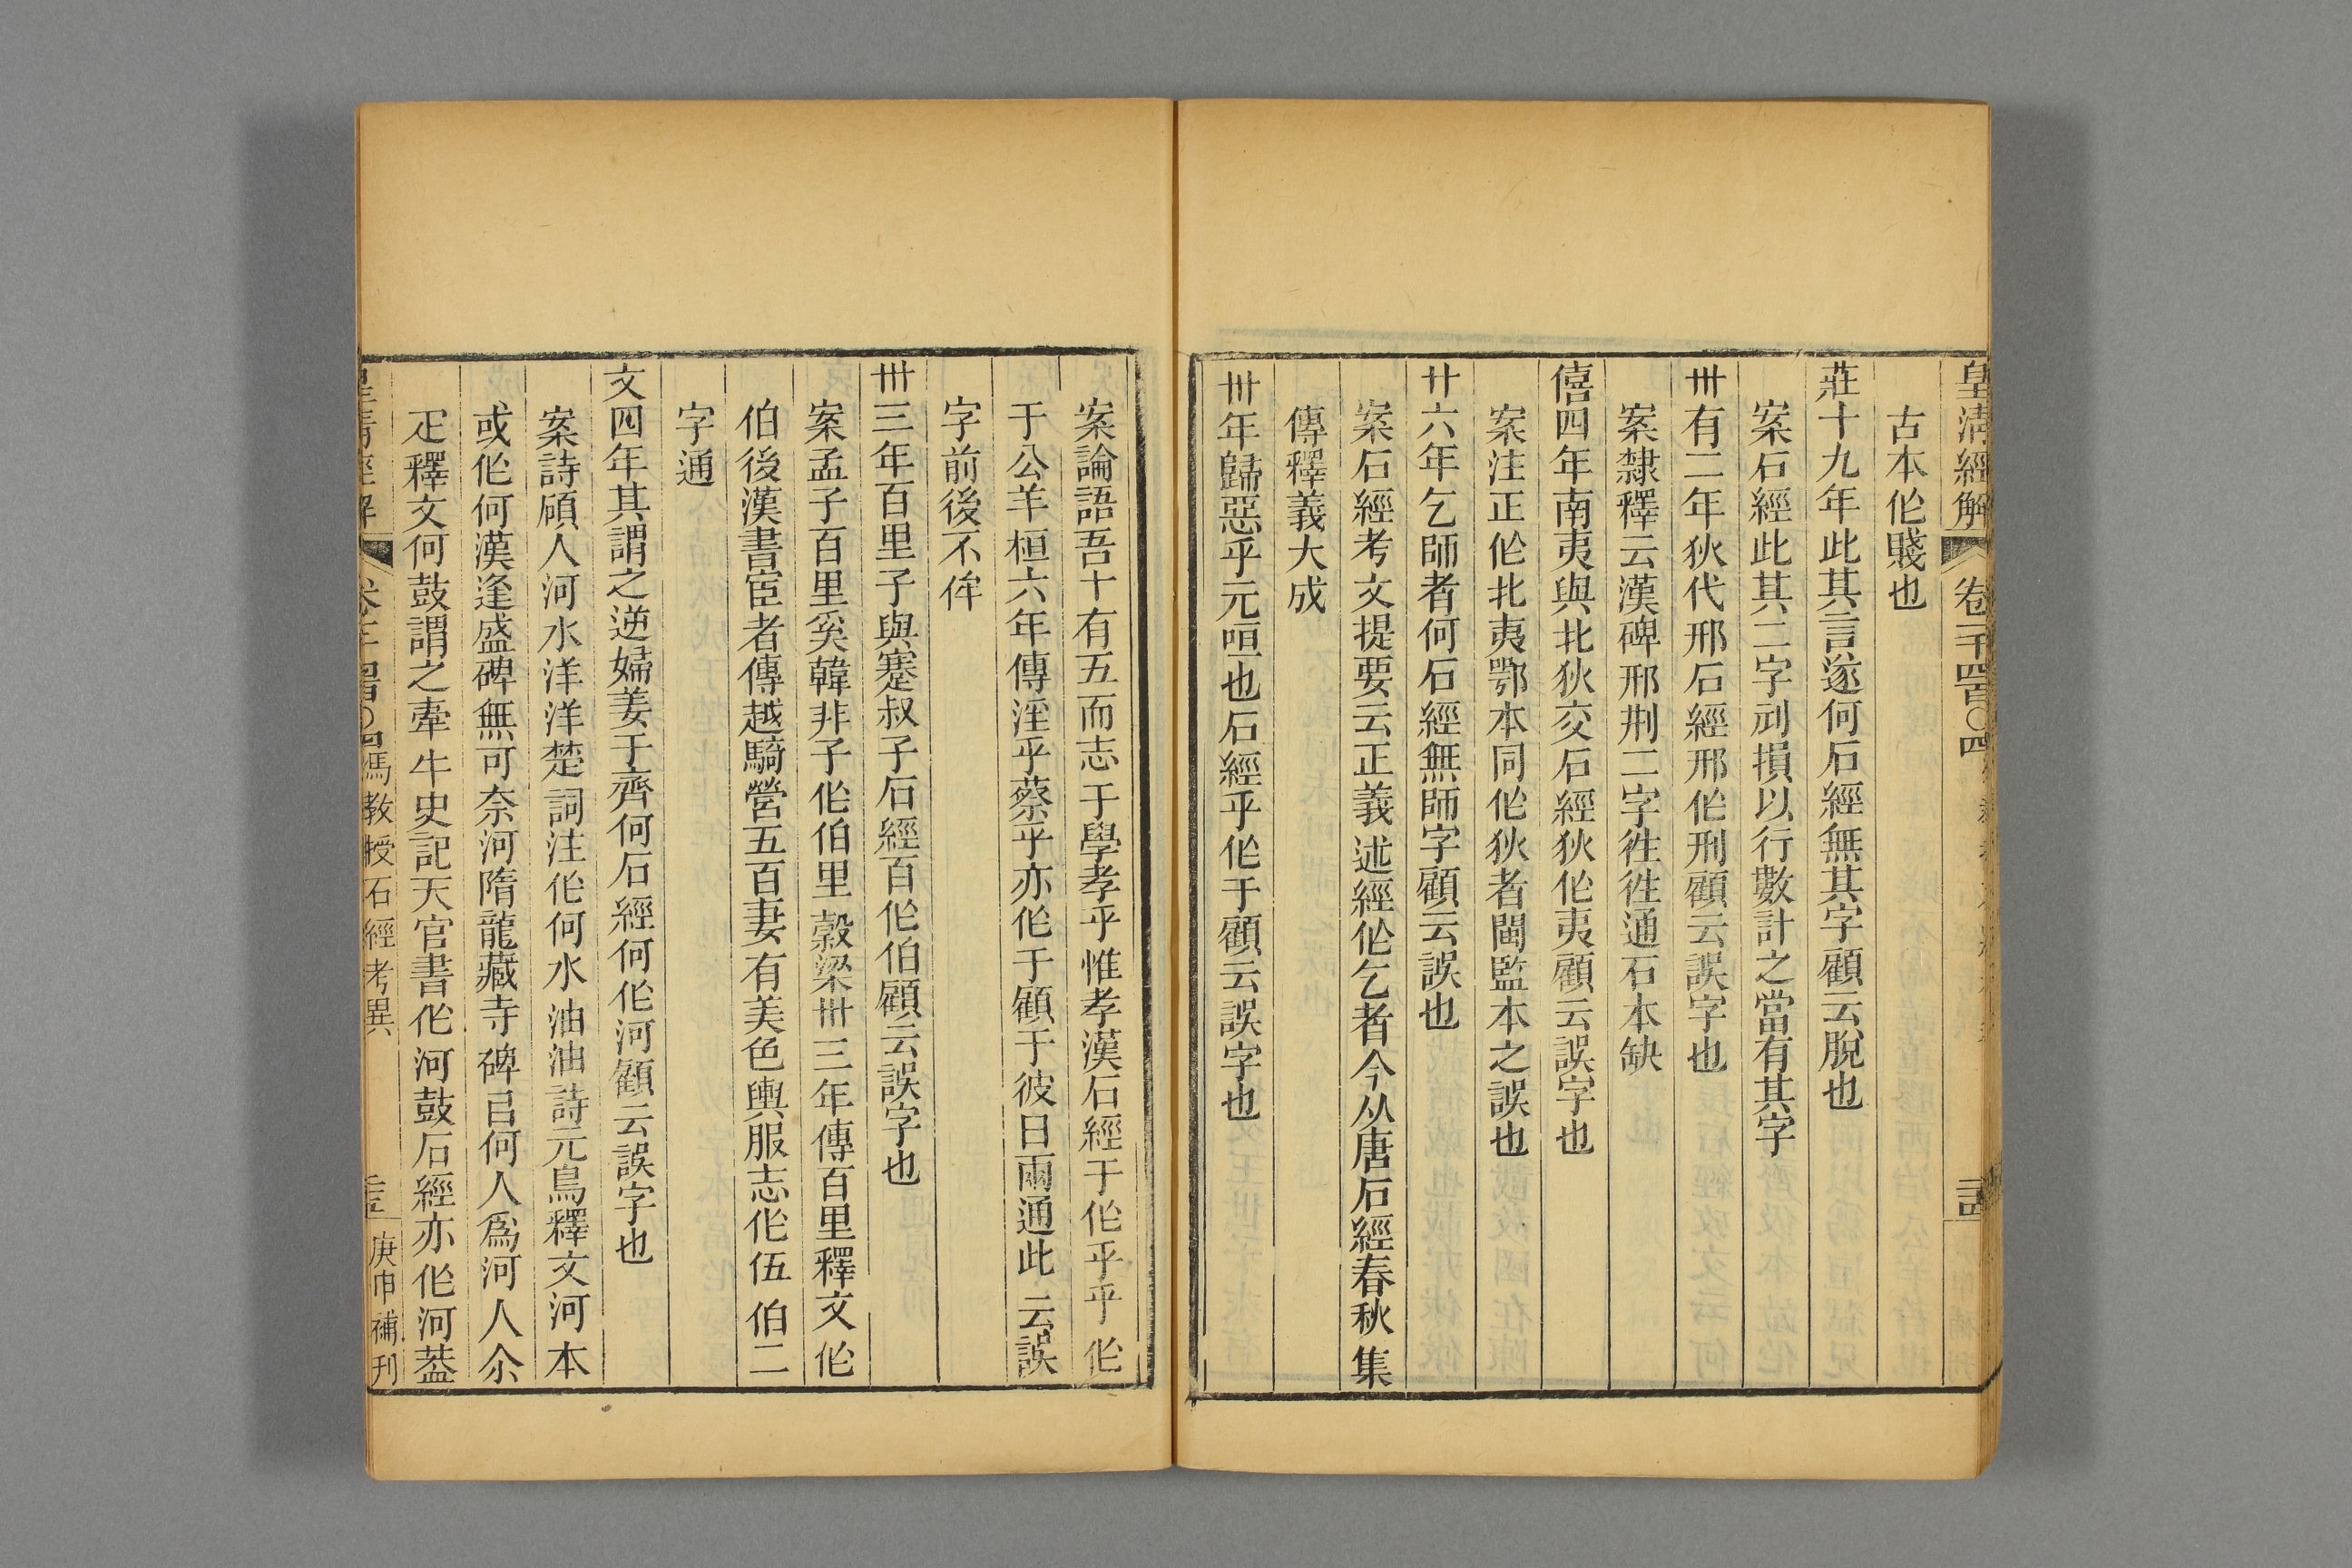 皇清經解 卷一千四百〇四 二十四
古本作賤也
莊十九年此其言遂何石經無其字顧云脫也
案石經此其二字刓損以行數計之當有其字
卅有二年狄伐邢石經邢作刑顧云誤字也
案隸釋云漢碑邢荆二字徃徃通石本缺
僖四年南夷與北狄交石經狄作夷顧云誤字也
案注正作北夷鄂本同作狄者閩監本之誤也
廿六年乞師者何石經無師字顧云誤也
案石經考文提要云正義述經作乞者今从唐石經春秋集
傳釋義大成
卅年歸惡乎元咺也石經乎作于顧云誤字也
案論語吾十有五而志于學孝乎惟孝漢石經于作乎乎作
于公羊桓六年傳淫乎蔡乎亦作于顧于彼曰兩通此云誤
字前後不侔
卅三年百里子與蹇叔子石經百作伯顧云誤字也
案孟子百里奚韓非子作伯里穀梁卅三年傳百里釋文作
伯後漢書宦者傳越騎營五百妻有美色輿服志作伍伯二
字通
文四年其謂之逆婦姜于齊何石經何作河顧云誤字也
案詩碩人河水洋洋楚詞注作何水油油詩元鳥釋文河本
或作何漢逢盛碑無可奈河隋龍藏寺碑㠯何人爲河人尒
疋釋文何鼓謂之牽牛史記天官書作河鼓石經亦作河葢
皇清經解 卷一千四百〇四馮教授石經考異 二十五 庚申補刊